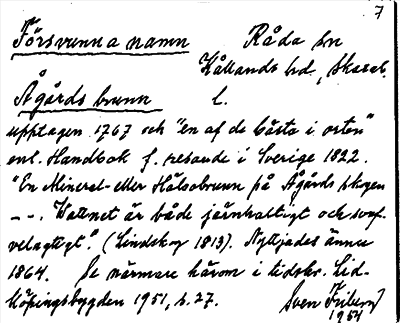 7
Försvunna namn Råda sn
Kållands hd., Skarab.
Ågårds brunn l.
upptagen 1767 och "en af de bästa i orten"
enl. Handbok f. resande i Sverige 1822.
"En Mineral- eller Hälsobrunn på Ågårds skogen
- - . Wattnet är både järnhaltigt och svaf-
velagtigt." (Lindskog 1813). Nyttjades ännu
1864. Se närmare härom i tidskr. Lid-
köpingsbygden 1951, s. 27. Sven Friberg
1954